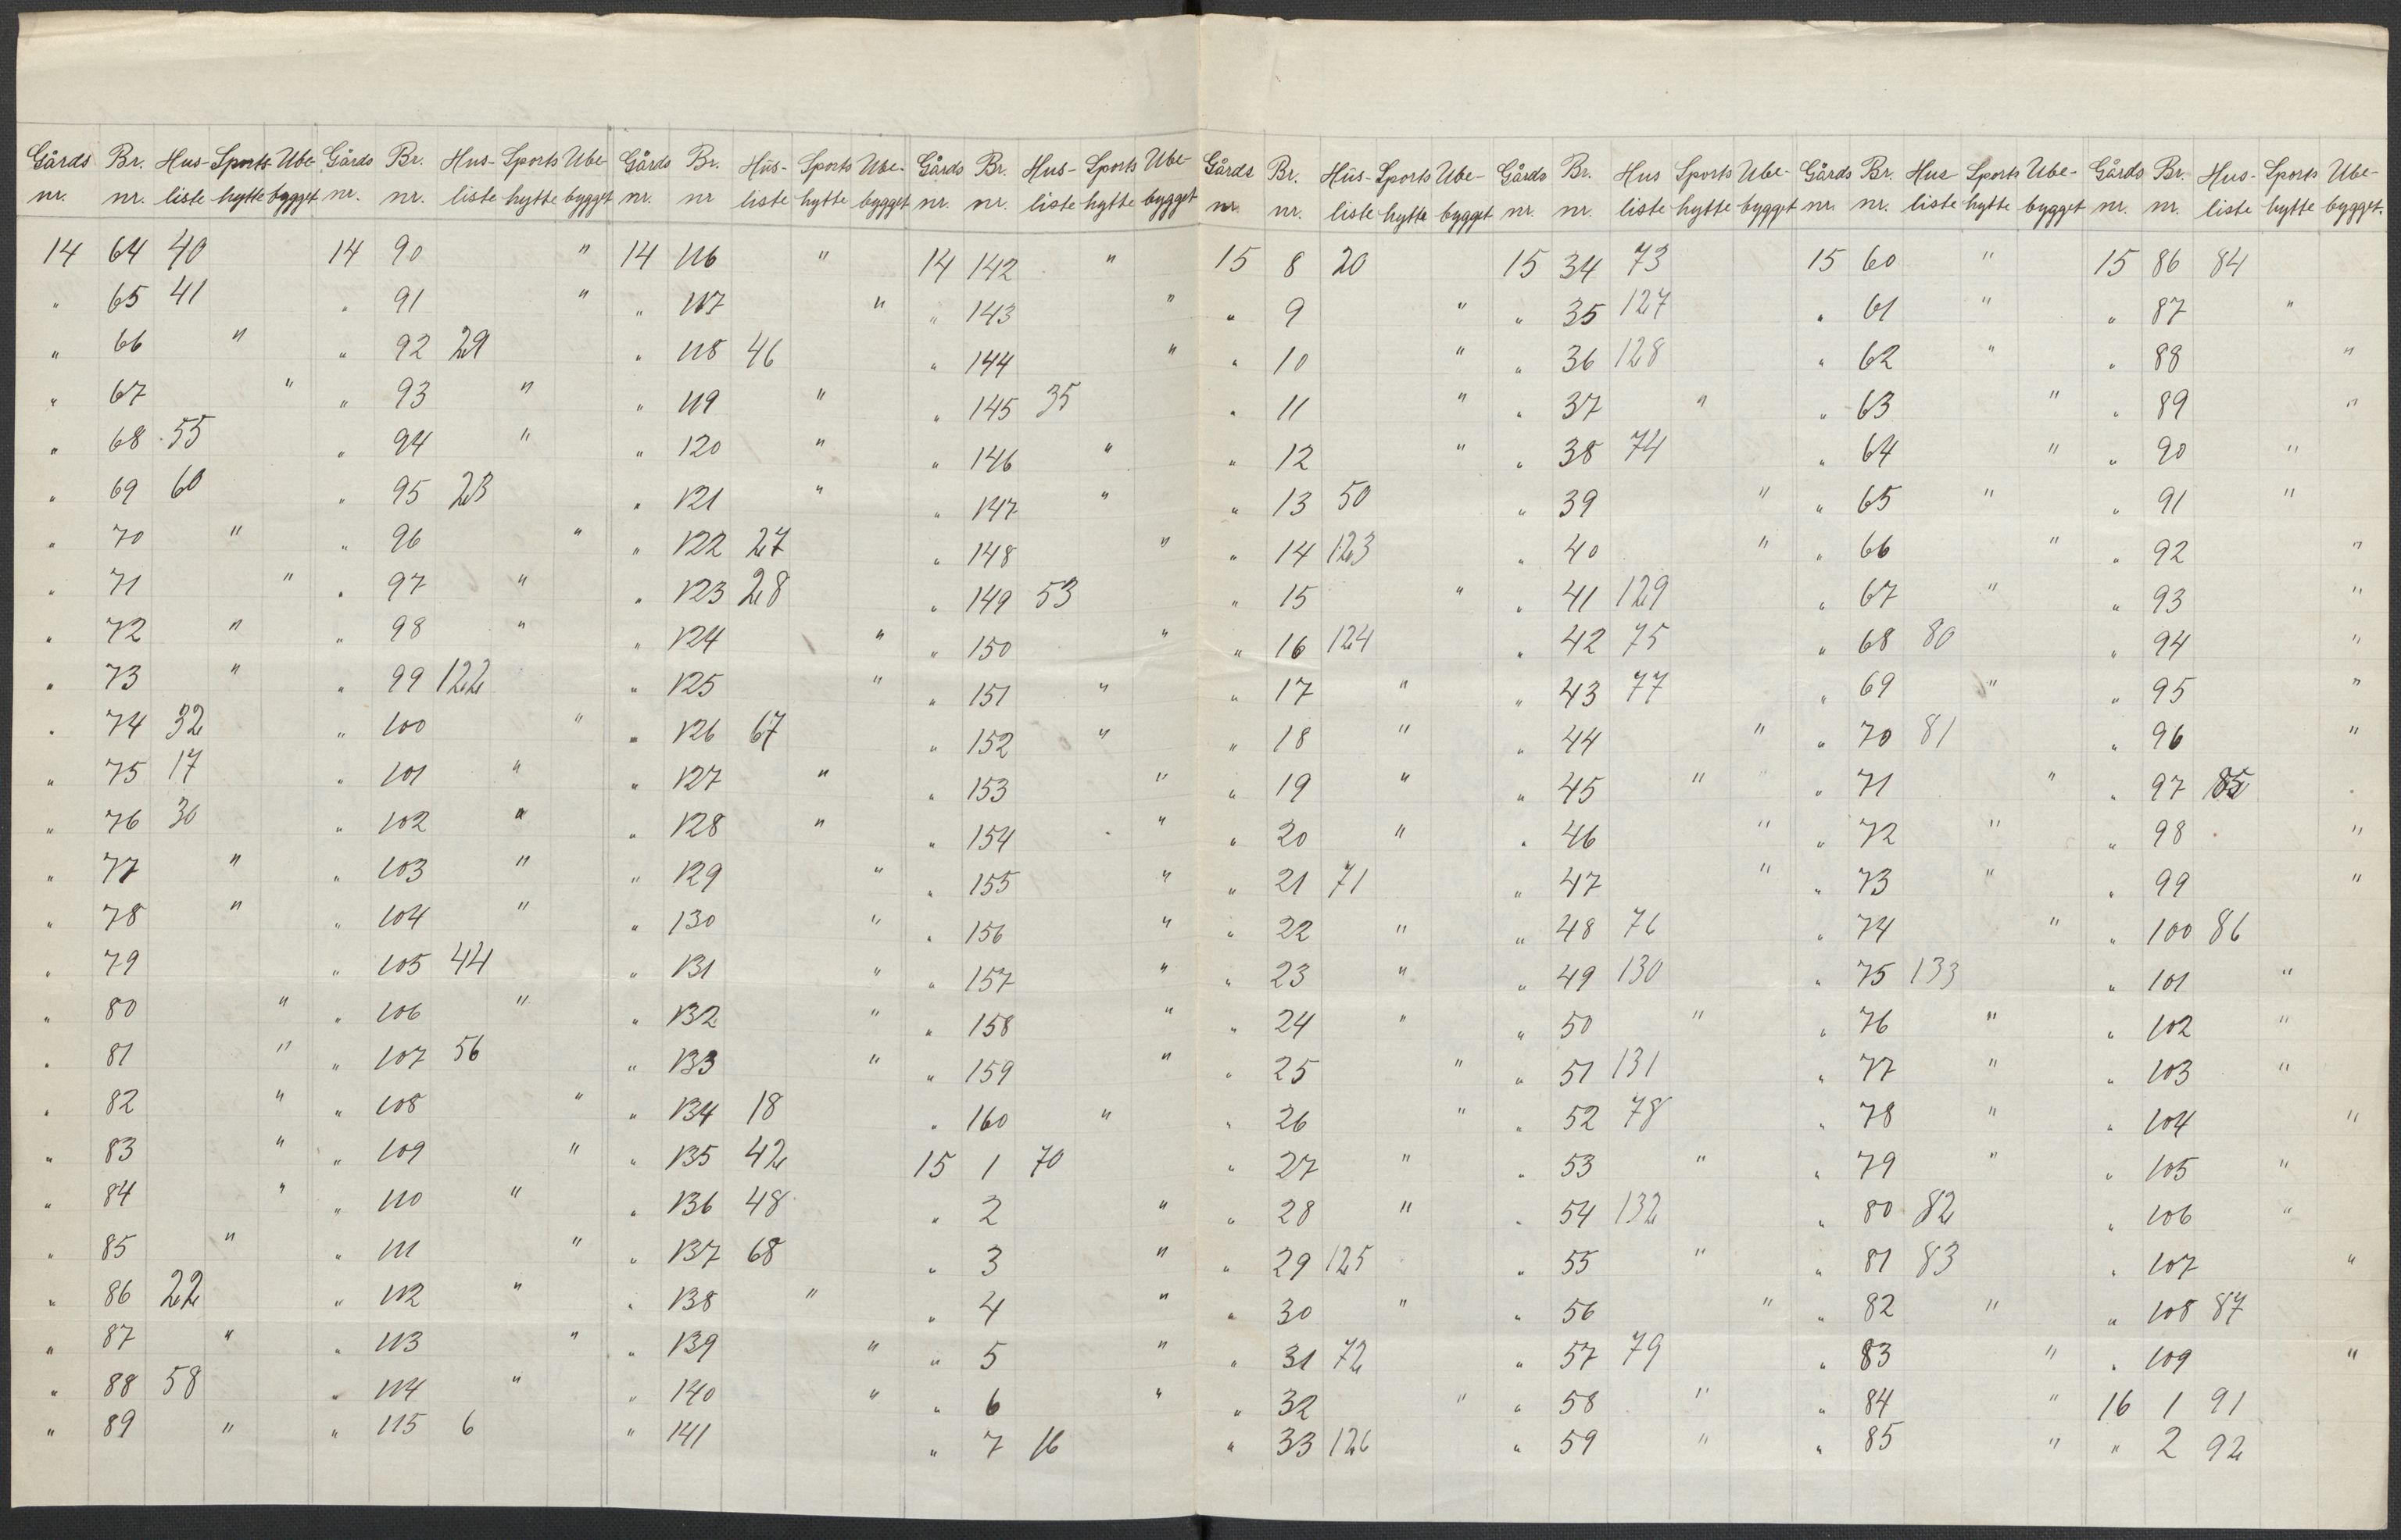 Gårds Br. Hus- Sports- Ube- Gårds Br. Hus- Sports Ube- Gårds Br. Hus- Sports Ube- Gårds Br. Hus- Sports Ube-
nr. nr. liste hytte bygget nr. nr. liste hytte bygget nr. nr liste hytte bygget nr. nr. liste hytte bygget
14 64 40 14 90 " 14 116 " 14 142 "
" 65 41 " 91 " " 117 " " 143 "
" 66 " " 92 29 " 118 46 " 144 "
" 67 " " 93 " " 119 " " 145 35
" 68 55 " 94 " " 120 " " 146 "
" 69 60 " 95 23 " 121 " " 147 "
" 70 " " 96 " " 122 27 " 148 "
" 71 " " 97 " " 123 28 " 149 53
" 72 " " 98 " " 124 " " 150 "
" 73 " " 99 122 " 125 " " 151 "
" 74 32 " 100 " " 126 67 " 152 "
" 75 17 " 101 " " 127 " " 153 "
" 76 30 " 102 " " 128 " " 154 "
" 77 " " 103 " " 129 " " 155 "
" 78 " " 104 " " 130 " " 156 "
" 79 " 105 44 " 131 " " 157 "
" 80 " " 106 " " 132 " " 158 "
" 81 " " 107 56 " 133 " " 159 "
" 82 " " 108 " " 134 18 " 160 "
" 83 " " 109 " " 135 42 15 1 70
" 84 " " 110 " " 136 48 " 2 "
" 85 " " 111 " " 137 68 " 3 "
" 86 22 " 112 " " 138 " " 4 "
" 87 " " 113 " " 139 " " 5 "
" 88 58 " 114 " " 140 " " 6 "
" 89 " " 115 6 " 141 " 7 16
Gårds Br. Hus- Sports Ube- Gårds Br. Hus Sports Ube- Gårds Br. Hus Sports Ube- Gårds Br. Hus- Sports Ube-
nr. nr. liste hytte bygget nr. nr. liste hytte bygget nr. nr. liste hytte bygget nr. nr. liste hytte bygget.
15 8 20 15 34 73 15 60 " 15 86 84
" 9 " " 35 127 " 61 " " 87 "
" 10 " " 36 128 " 62 " " 88 "
" 11 " " 37 " " 63 " " 89 "
" 12 " " 38 74 " 64 " " 90 "
" 13 50 " 39 " " 65 " " 91 "
" 14 123 " 40 " " 66 " " 92 "
" 15 " " 41 129 " 67 " " 93 "
" 16 124 " 42 75 " 68 80 " 94 "
" 17 " " 43 77 " 69 " " 95 "
" 18 " " 44 " " 70 81 " 96 "
" 19 " " 45 " " 71 " " 97 85
" 20 " " 46 " " 72 " " 98 "
" 21 71 " 47 " " 73 " " 99 "
" 22 " " 48 76 " 74 " " 100 86
" 23 " " 49 130 " 75 133 " 101 "
" 24 " " 50 " " 76 " " 102 "
" 25 " " 51 131 " 77 " " 103 "
" 26 " " 52 78 " 78 " " 104 "
" 27 " " 53 " " 79 " " 105 "
" 28 " " 54 132 " 80 82 " 106 "
" 29 125 " 55 " " 81 83 " 107 "
" 30 " " 56 " " 82 " " 108 87
" 31 72 " 57 79 " 83 " " 109 "
" 32 " " 58 " " 84 " 16 1 91
" 33 126 " 59 " " 85 " " 2 92